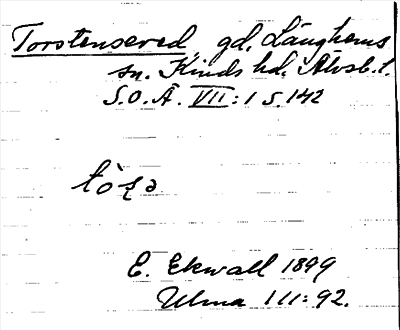 Torstensered, gd. Länghems
sn. Kinds hd. Älvsb. l.
S.O.Ä. VII:1 S. 142
E. Ekwall 1899
Ulma 111:92.